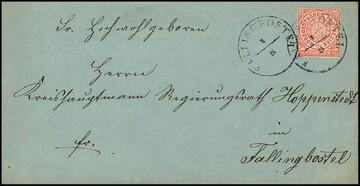 Sr. Hochwohlgeboren
Herrn
Kreishauptmann Regierungsrath Hoppenstedt
in
fr.
Fallingbostel
FALLINGBOSTEL